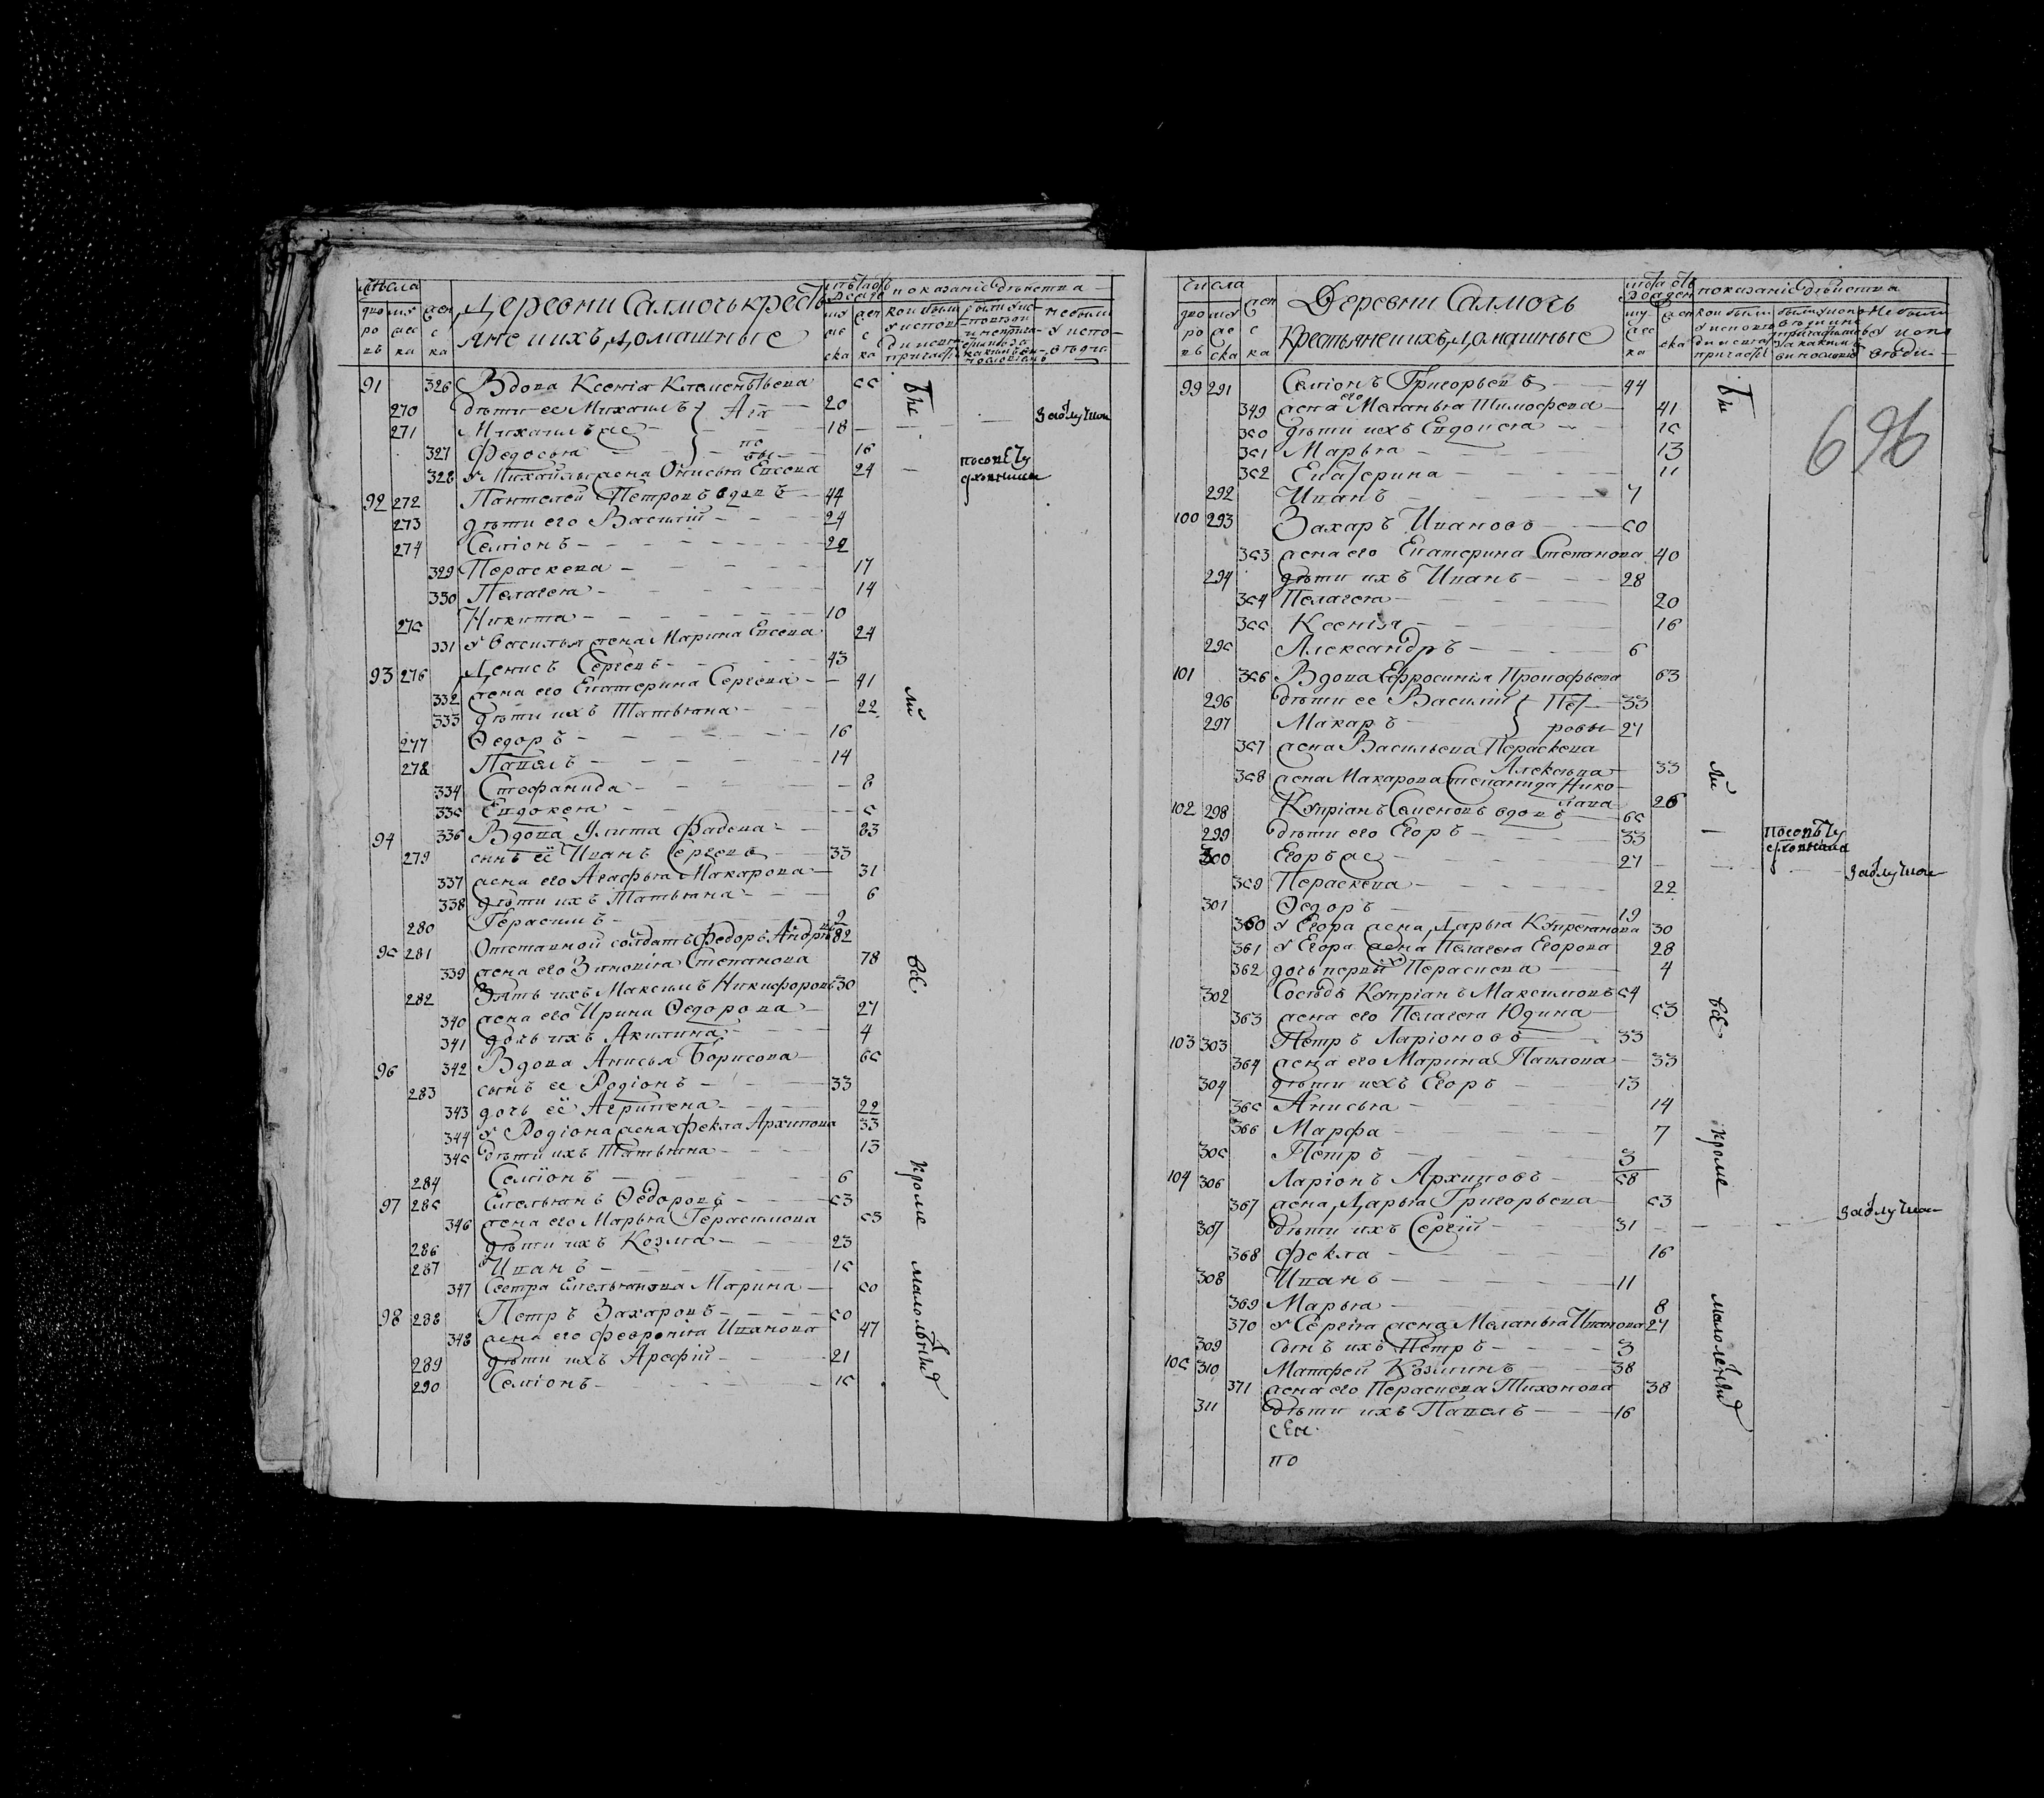 числа
Деревни Салмочь кресть
лѣта отъ рожде
показаніе дѣйства
яне и ихъ домашные
91 326 Вдова Ксенїя Климентьева 55
270 дѣти ее Михаилъ 20
271 Михаилъ же 18 заблужен
327 Федосья 16
328 У Михайлы жена Онисья Евсева 24 посовѣту
92 272 Пантелей Петровъ вдовъ 44
273 дѣти его Василій 24
274 Семіонъ 22
329 Пераскева 17
330 Пелагея 14
275 Никита 10
331 У Василья жена Марина Евсева 24
93 276 Денисъ Сергеевъ 43
332 жена его Екатерина Сергева 41
333 дѣти ихъ Татьяна 22
277 Ѳедоръ 16
278 Павелъ 14
334 Стефанида 8
335 Евдокея 5
94 336 Вдова Улита Фадева 83
279 сынъ её Иванъ Сергевъ 33
337 жена его Агафья Макарова 31
338 дѣти ихъ Татьяна 6
280 Герасимъ 2
95 281 Отставной солдатъ Федоръ Андрѣевъ 82
339 жена его Зиновія Степанова 78
282 Зять ихъ Максимъ Никифоровъ 30
340 жена его Ирина Ѳедорова 27
341 дочь ихъ Акилина 4
96 342 Вдова Анисья Борисова 65
283 сынъ ее Родіонъ 33
343 дочь её Агрипена 22
344 У Родіона жена Фекла Архипова 33
345 дѣти ихъ Татьяна 13
284 Семіонъ 6
97 285 Емельянъ Ѳедоровъ 53
346 жена его Марья Герасимова 53
286 дѣти ихъ Козма 23
287 Иванъ 15
347 Сестра Емельянова Марина 50
98 288 Петръ Захаровъ 50
348 жена его Феврония Иванова 47
289 дѣти ихъ Арефій 21
290 Семіонъ 15
Бы
ли
всѣ
кроме
малолѣтныхъ
696
числа
Деревни Салмочь
лѣта отъ рожден
показаніе дѣйства
Крестьяне и ихъ домашные
99 291 Семіонъ Григорьевъ 44
349 жена его Меланья Тимофева 41
350 дѣти ихъ Евдокея 15
351 Марья 13
352 Екатерина 11
292 Иванъ 7
100 293 Захаръ Ивановъ 50
353 жена его Екатерина Степанова 40
294 дѣти ихъ Иванъ 28
354 Пелагея 20
355 Ксенія 16
295 Александръ 6
101 356 Вдова Ефросинья Прокофьева 63
296 дѣти ее Василій Пет 33
297 Макаръ ровы 27
357 жена Васильева Пераскева
Алексѣева 33
358 жена Макарова Степанида Нико
лаева 26
102 298 Купріанъ Семеновъ вдовъ 65
299 дѣти его Егоръ 33 посовѣту
300 Егоръ же 27 заблужен
359 Пераскева 22
301 Ѳедоръ 19
360 У Егора жена Дарья Купреянова 30
361 У Егора жена Пелагея Егорова 28
362 дочь первых Пераскева 4
302 Сосѣдъ Купріанъ Максимовъ 54
363 жена его Пелагея Юдина 53
103 303 Петръ Ларіоновъ 33
364 жена его Марина Павлова 33
304 дѣти ихъ Егоръ 13
365 Анисья 14
366 Марфа 7
305 Петръ 3
104 306 Ларіонъ Архиповъ 58
367 жена Дарья Григорьева 53
307 дѣти ихъ Сергій 31 заблужен
368 Фекла 16
308 Иванъ 11
369 Марья 8
370 У Сергія жена Меланья Иванова 27
309 сынъ ихъ Петръ 3
105 310 Матфей Козминъ 38
371 жена его Пераскева Тихонова 38
311 дѣти ихъ Павелъ 16
по
Бы
ли
всѣ
кроме
малолѣтныхъ